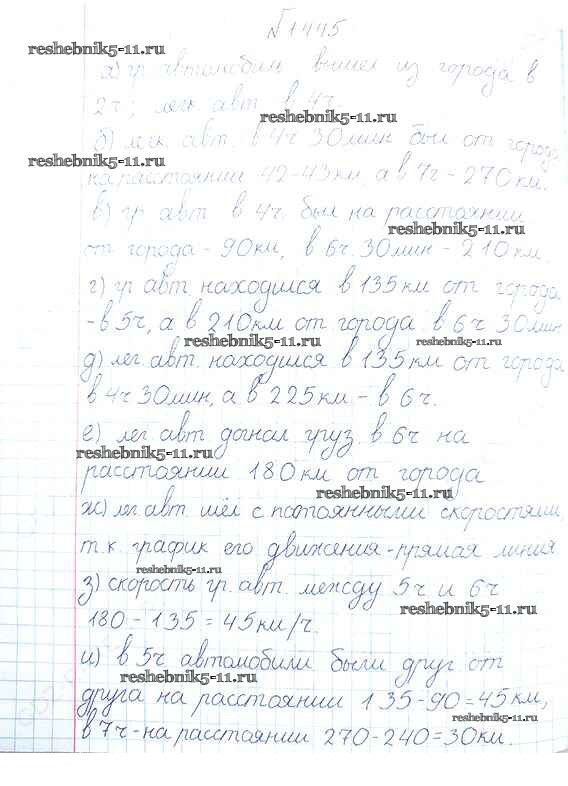 №1445
reshebnik5-11.ru
а) гр автомобил вышел из города в
2ч; легк авт. в 4ч.
reshebnik5-11.ru
б) легк. авт. в 4ч 30мин был от города
reshebnik5-11.ru
на расстоянии 42-43км, а в 7ч - 270км.
в) гр авт в 4ч. был на расстоянии
reshebnik5-11.ru
от города - 90км, в 6ч. 30мин - 210км.
г) гр авт. находился в 135км от города
- в 5ч, а в 210км от города в 6ч 30мин
reshebnik5-11.ru
reshebnik5-11.ru
д) лег. авт. находился в 135км от города
в 4ч 30мин, а в 225км - в 6ч.
е) лег авт догнал груз. в 6ч на
reshebnik5-11.ru
расстоянии 180км от города
reshebnik5-11.ru
ж) лег авт. шёл с постоянными скоростями,
т.к. график его движения - прямая линия
reshebnik5-11.ru
з) скорость гр. авт. между 5ч и 6ч
reshebnik5-11.ru
180 - 135 = 45км/ч.
и) в 5ч автомобили были друг от
reshebnik5-11.ru
друга на расстоянии 135-90=45км,
reshebnik5-11.ru
в 7ч - на расстоянии 270-240=30км.